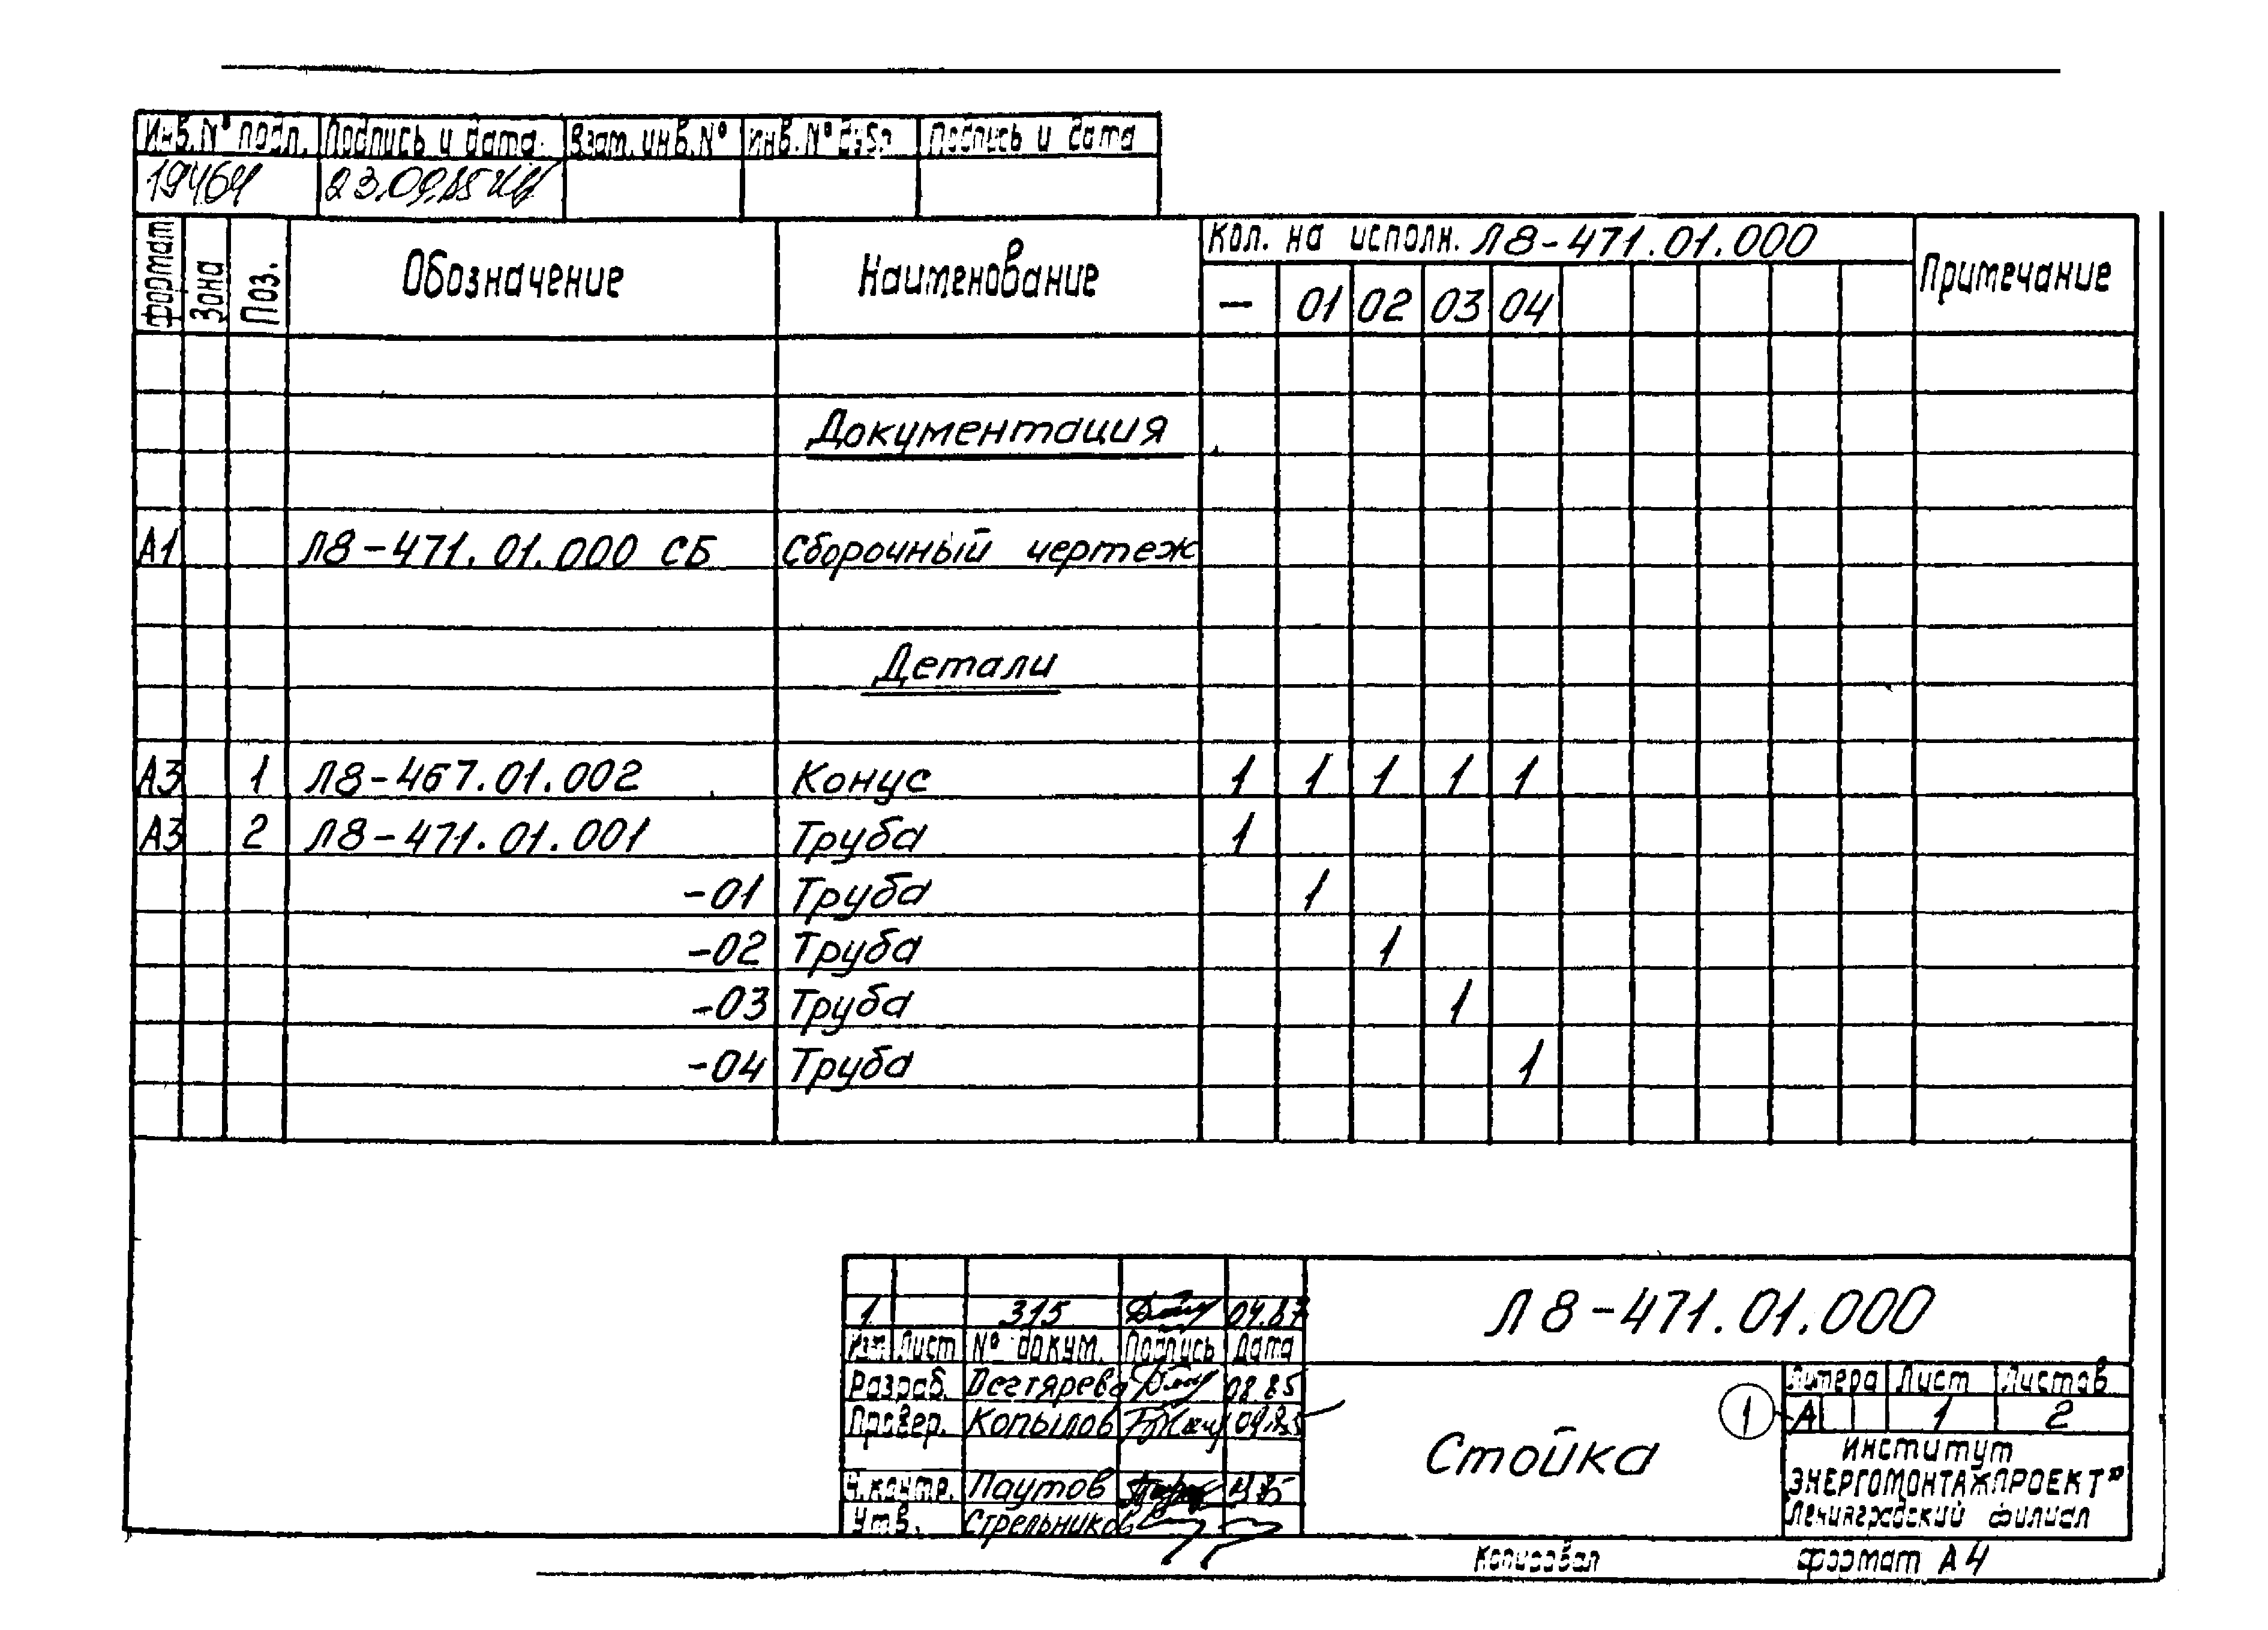 Инв.№ подл. Подпись и дата. Взам. инв.№ Инв.№ дубл. Подпись и дата
19464 23.09.85
Формат Зона Поз. Обозначение Наименование Кол. на исполн. Л8-471.01.000 Примечание
— 01 02 03 04
Документация
А1 Л8-471.01.000 СБ Сборочный чертеж
Детали
А3 1 Л8-467.01.002 Конус 1 1 1 1 1
А3 2 Л8-471.01.001 Труба 1
-01 Труба 1
-02 Труба 1
-03 Труба 1
-04 Труба 1
1 315 04.87
Изм Лист № докум. Подпись Дата
Л8-471.01.000
Разраб. Дегтярева 08.85
Провер. Копылов 09.85
Н.контр. Паутов
Утв. Стрельников
Стойка
1
Литера Лист Листов
А 1 2
институт
ЭНЕРГОМОНТАЖПРОЕКТ"
Ленинградский филиал
Копировал Формат А4